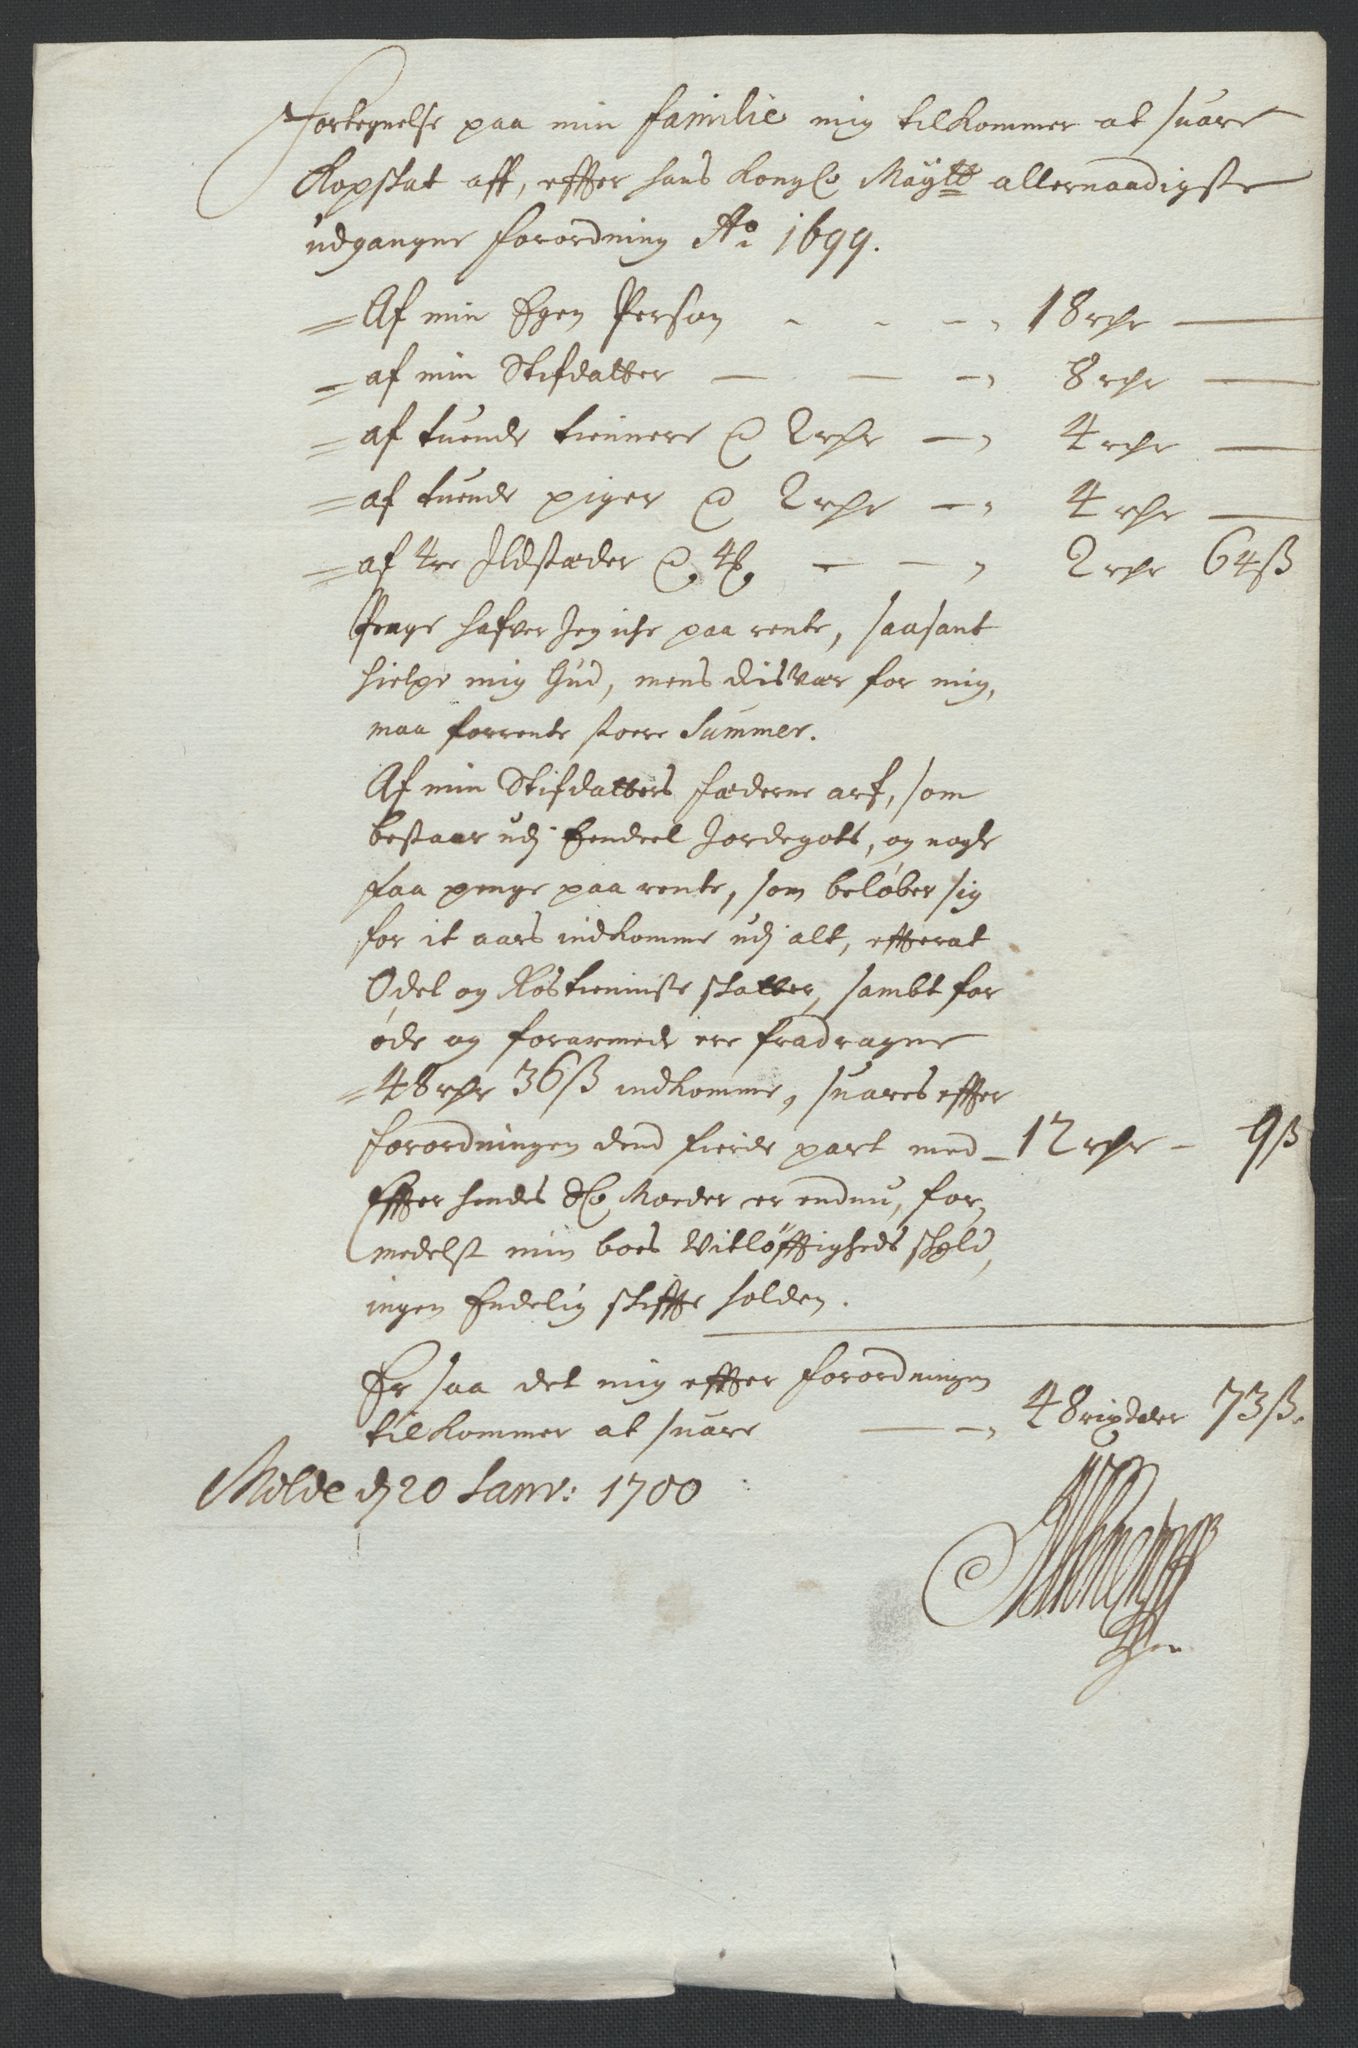 Fortegnelse paa min familie mig tilkommer at suare
Kopskat aff, effter hans Kongl. Maytt allernaadigste
udgangne forordning Ao 1699.
Af min Egen Person - - - 18 rdr
af min Stifdatter - - - 8 rdr
af tuende tiennere @ 2 rdr - 4 rdr
af tuende piger @ 2 rdr - 4 rdr
af 4re Ildstæder @ 4 - - 2 rdr 64 ß
Penge hafver Jeg iche paa rente, saasant
hielpe mig Gud, mens disvær for mig,
maa forrente stoere Summer.
Af min Stifdatters fæderne arf, som
bestaar udj Eendeel Jordegots, og nogle
faa penge paa rente, som beløber sig
for it aars indkomme udj alt, efterat
Odel og Rostienniste skatter, sambt for
øde og forarmede ere fradragne
48 rdr 36 ß indkomme, suares effter
forordningen dend fierde part med 12 rdr - 9 ß
Effter hendes Sl. Moeder er endnu, for,
medelst min boes Vitløfftigheds skyld,
ingen Endelig skiffte holden.
Er saa det mig effter forordningen
tilkommer at suare - - 48 rixdaler 73 ß.
Milde d 20 Janv: 1700